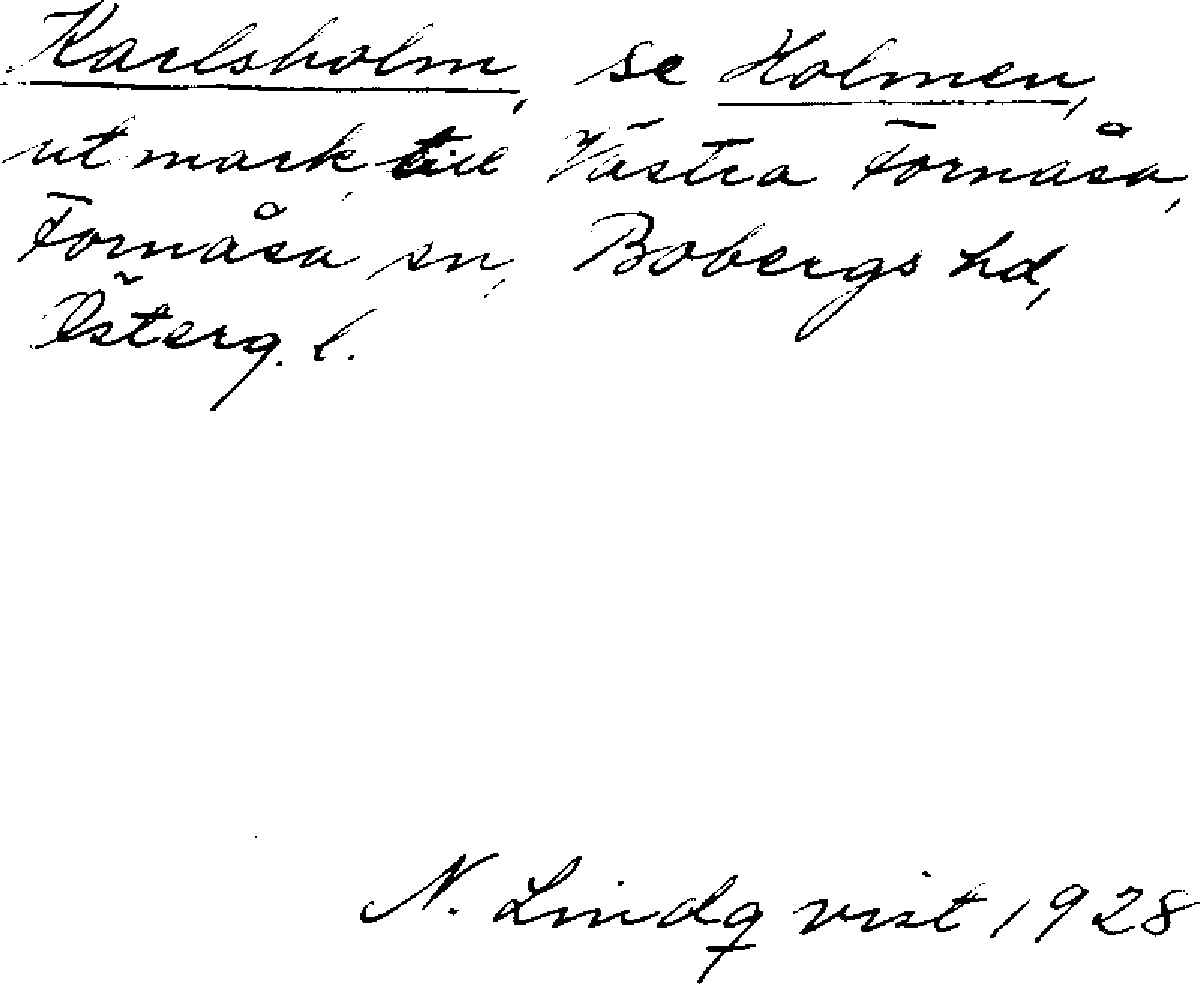 Karlsholm, se Holmen,
utmark till Västra Fornåsa,
Fornåsa sn, Bobergs hd,
Österg. l.
N. Lindqvist 1928